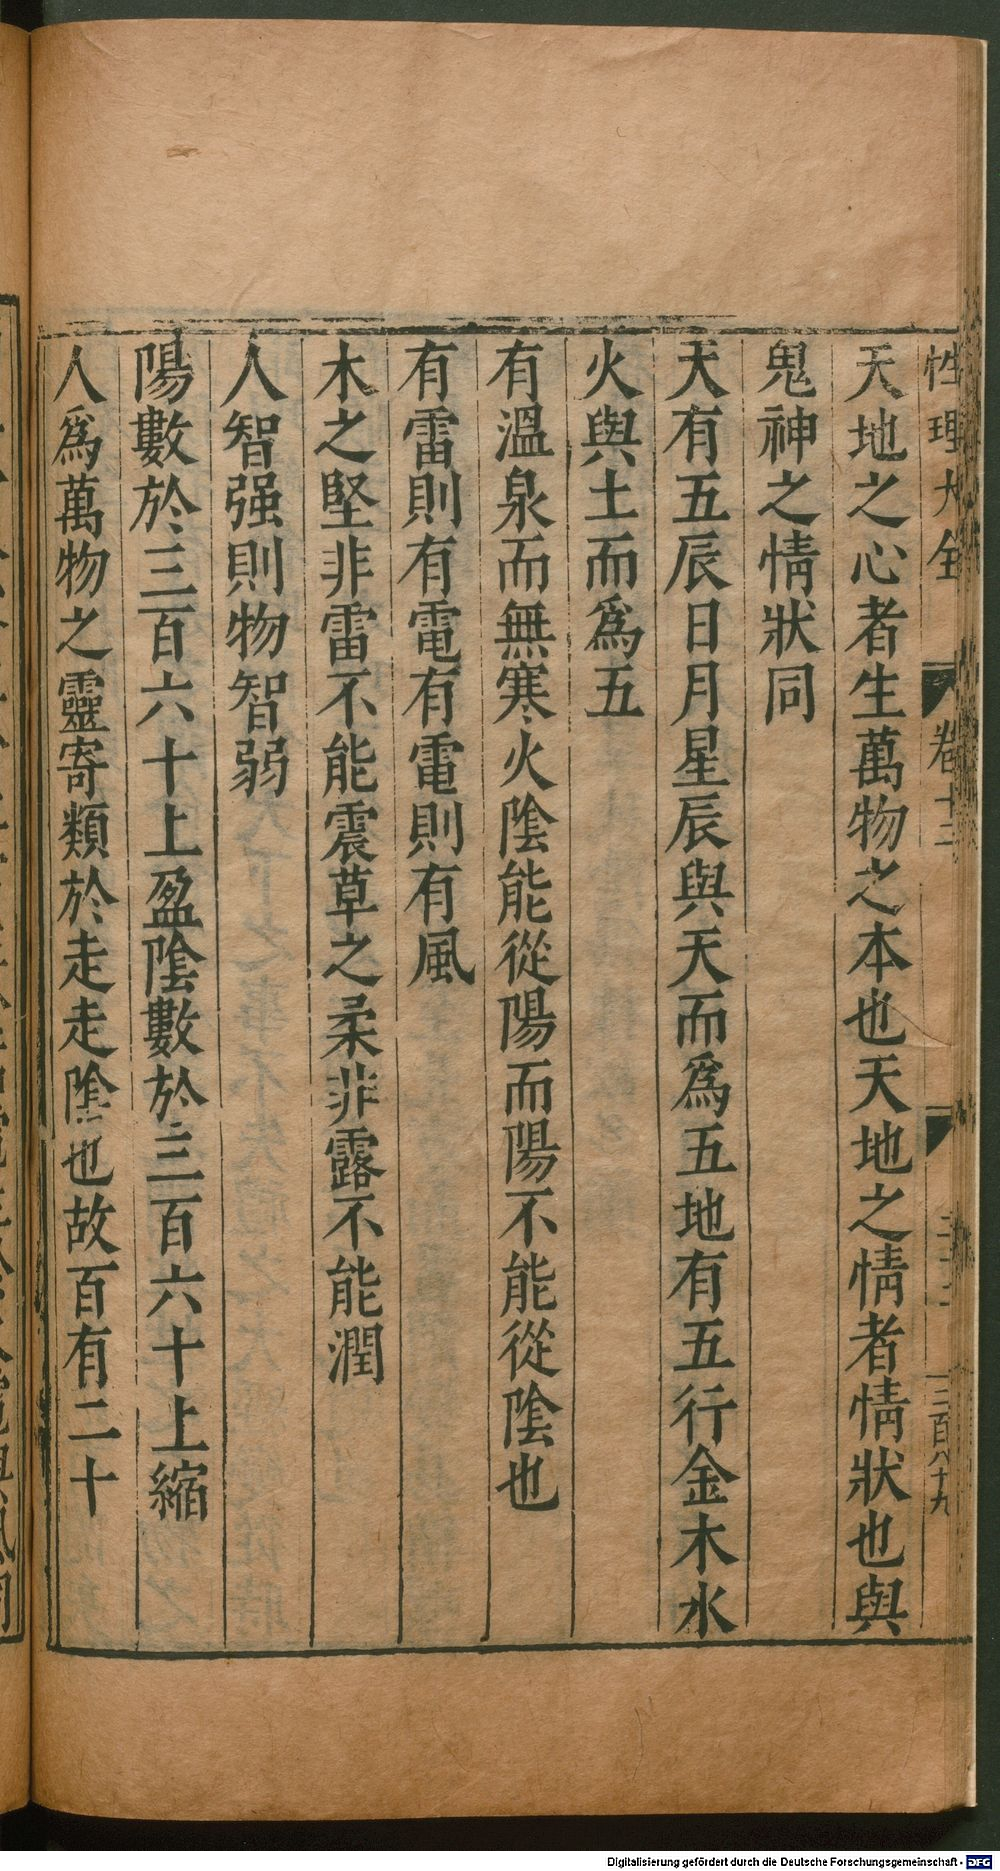 性理大全 卷十二 三百八十九
天地之心者生萬物之本也天地之情者情狀也與
鬼神之情狀同
天有五辰日月星辰與天而爲五地有五行金木水
火與土而爲五
有溫泉而無寒火陰能從陽而陽不能從陰也
有雷則有電有電則有風
木之堅非雷不能震草之柔非露不能潤
人智强則物智弱
陽數於三百六十上盈陰數於三百六十上縮
人爲萬物之靈寄類於走走陰也故百有二十
Digitalisierung gefördert durch die Deutsche Forschungsgemeinschaft - DFG